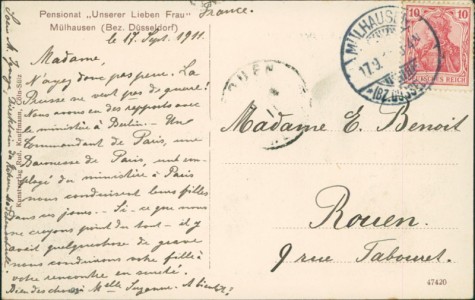 Pensionat „Unserer Lieben Frau"
Mülhausen (Bez. Düsseldorf)
France.
le 17 Sept. 1911.
Madame,
N'ayez donc pas peur. La
Prusse ne veut pas de guerre!
Nous avons eu des rapports avec
le ministère à Berlin. – Un
Commandant de Paris, une
Baronesse de Paris, un em-
ployé du ministère à Paris
nous conduiront leurs filles
dans ces jours. – Si – ce que nous
ne croyons point du tout – il y
avait quelque chose de grave
nous conduirons votre fille à
votre rencontre en sureté.
Bien des choses à Mlle Suzanne. A bientôt?
Kunstverlag Rud. Kauffmann, Cöln-Sülz
MÜLHAUSEN
17.9.
(BZ. DÜSS
10
10
DEUTSCHES REICH
ROUEN
Madame E. Benoit
Rouen.
9 rue Tabouret.
47420